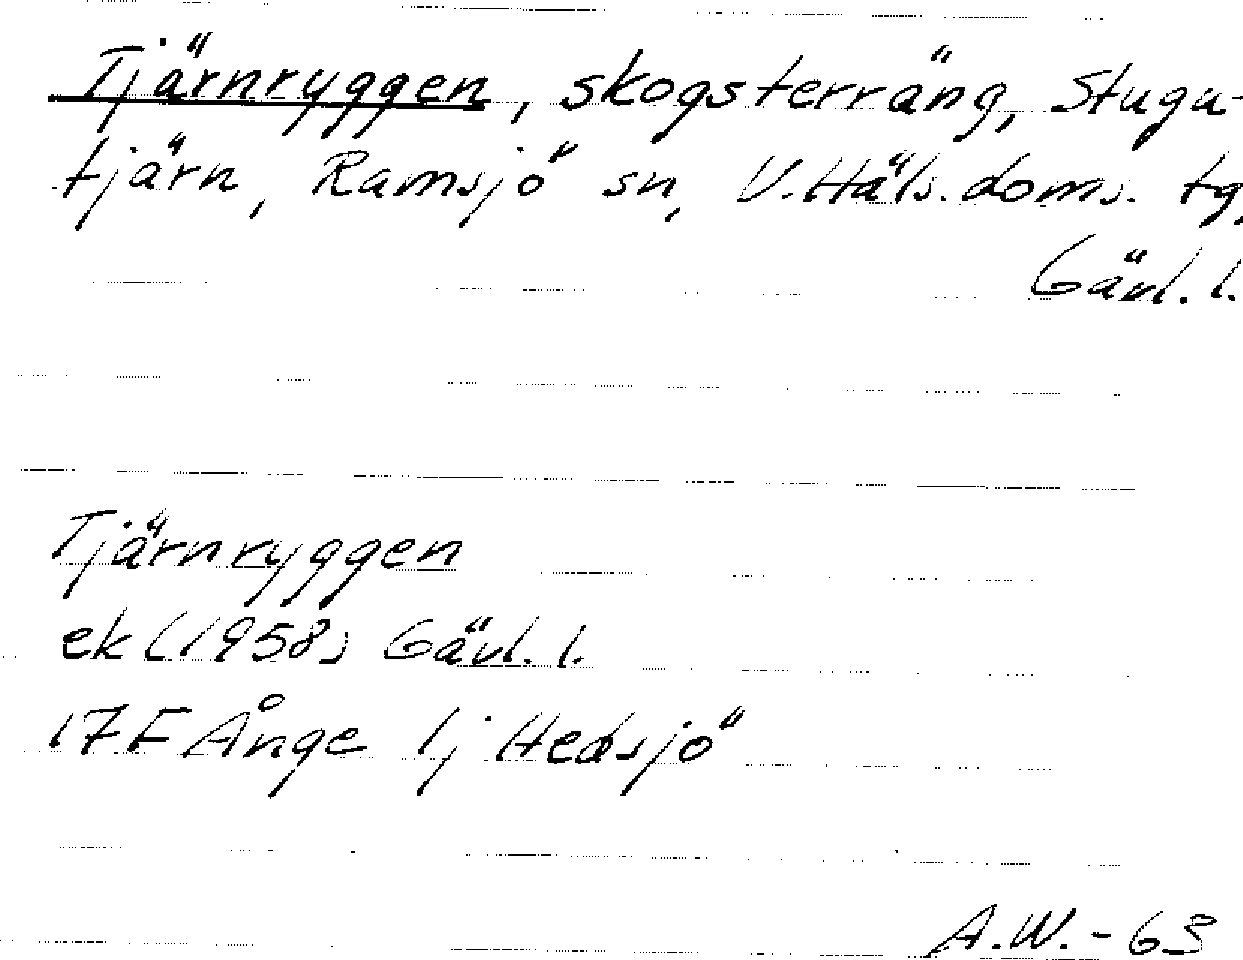 Tjärnryggen, skogsterräng, Stuga-
tjärn, Ramsjö sn, V.Häls.doms. tg,
Gävl. l.
Tjärnryggen
ek (1958) Gävl. l.
17F Ånge 1j Hedsjö
A.W.-63